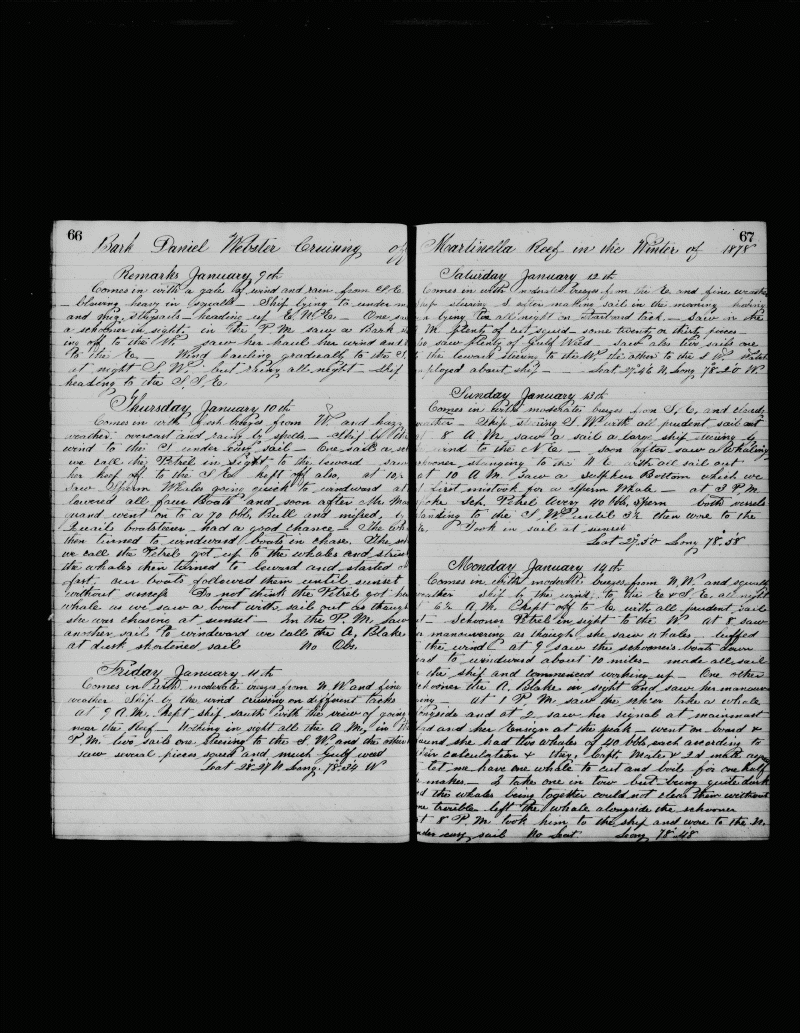 66
Bark Daniel Webster Cruising of
Remarks January 9th
Comes in with a gale of wind and rain from S.E.
blowing heavy in squalls - Ship lying to under
and heading up E.N.E. - One
a schooner in sight in the P.M. saw a Bark
ing off to the W. saw her haul her wind and
to the E - Wind hauling gradually to the S.
at night S.W. but all night - ship
heading to the S S E
Thursday January 10th
Comes in with fresh breezes from W. and hazy
weather overcast and rainy by spells - Ship by the
wind to the S under easy sail - One sail
we call the Petrel in sight to the leward saw
her keep off to the kept off also. at 10
saw Sperm Whales going quick to windward at
lowered all four Boats and soon after Mr.
went on to a 70 bbl Bull and missed,
boatsteerer - had a good chance - The
then turned to windward boats in chase. The
we call the Petrel got up to the whales and
the whales then turned to leward and started
fast, our boats followed them until sunset
without success Do not think the Petrel got her
whale as we saw a boat with sail out as though
she was chasing at sunset - In the P.M. saw
another sail to windward we call the A. Blake
at dusk shortened sail No Obs.
Friday January 11th
Comes in with moderate breezes from N W and fine
weather Ship by the wind cruising on different tacks
at 9 A.M. Kept ship south with the view of going
near the Reef - Nothing in sight all the A.M. in
P.M. two sails one steering to the S W. and the other
saw several pieces squid and much Gulf weed
Leat 28-27 N Long. 78-54 W
67
Martinella Reef in the Winter of 1878
Saturday January 12th
Comes in with moderate breezes from the E and fine weather
steering S after making sail in the morning having
lying all night on Starboard tack. - saw in the
M. plenty of cut squid - some twenty or thirty pieces
saw plenty of Gulf Weed - Saw also two sails one
the leward steering to the W the other to the S W.
ployed about ship - Leat 27-46 N Long 78-20 W
Sunday January 13th
Comes in with moderate breezes from S.E. and cloudy
weather - Ship steering S W with all prudent sail out
8 A.M. saw a sail a large ship steering by
wind to the N E - soon after saw a Whaling
schooner standing to the N E with all sail out
at 10 A.M. Saw a Sulpher Bottom which we
first mistook for a Sperm Whale - at 3 P.M.
Sch. Petrel Avery 40 bbls Sperm both vessels
standing to the S W until 5½ then wore to the
Took in sail at sunset
Leat - 27-50 Long 78-58
Monday January 14th
Comes in with moderate breezes from N.W. and squally
weather ship by the wind to the E & S.E. all night
6½ A.M. kept off to E with all prudent sail
Schooner Petrel in sight to the W at 8 saw
maneuvering as though she saw whales. luffed
the wind at 9 saw the schooners boats down
to windward about 10 miles - made all sail
the ship and commenced working up - One other
schooner the A. Blake in sight and saw her
at 1 P M saw the take a whale
and at 2 saw her signal at mainmast
and her Ensign at the peak - went on board &
she had two whales of 40 bbls each according to
calculation & they, Capt, Mates & 2d mate
let me have one whale to cut and boil for one half
makes - I take one in tow but being quite dark
the whales being together could not clear them without
trouble left the whale alongside the schooner
at 8 P.M. took him to the ship and wore to the N.
under easy sail No Leat Long 78-48